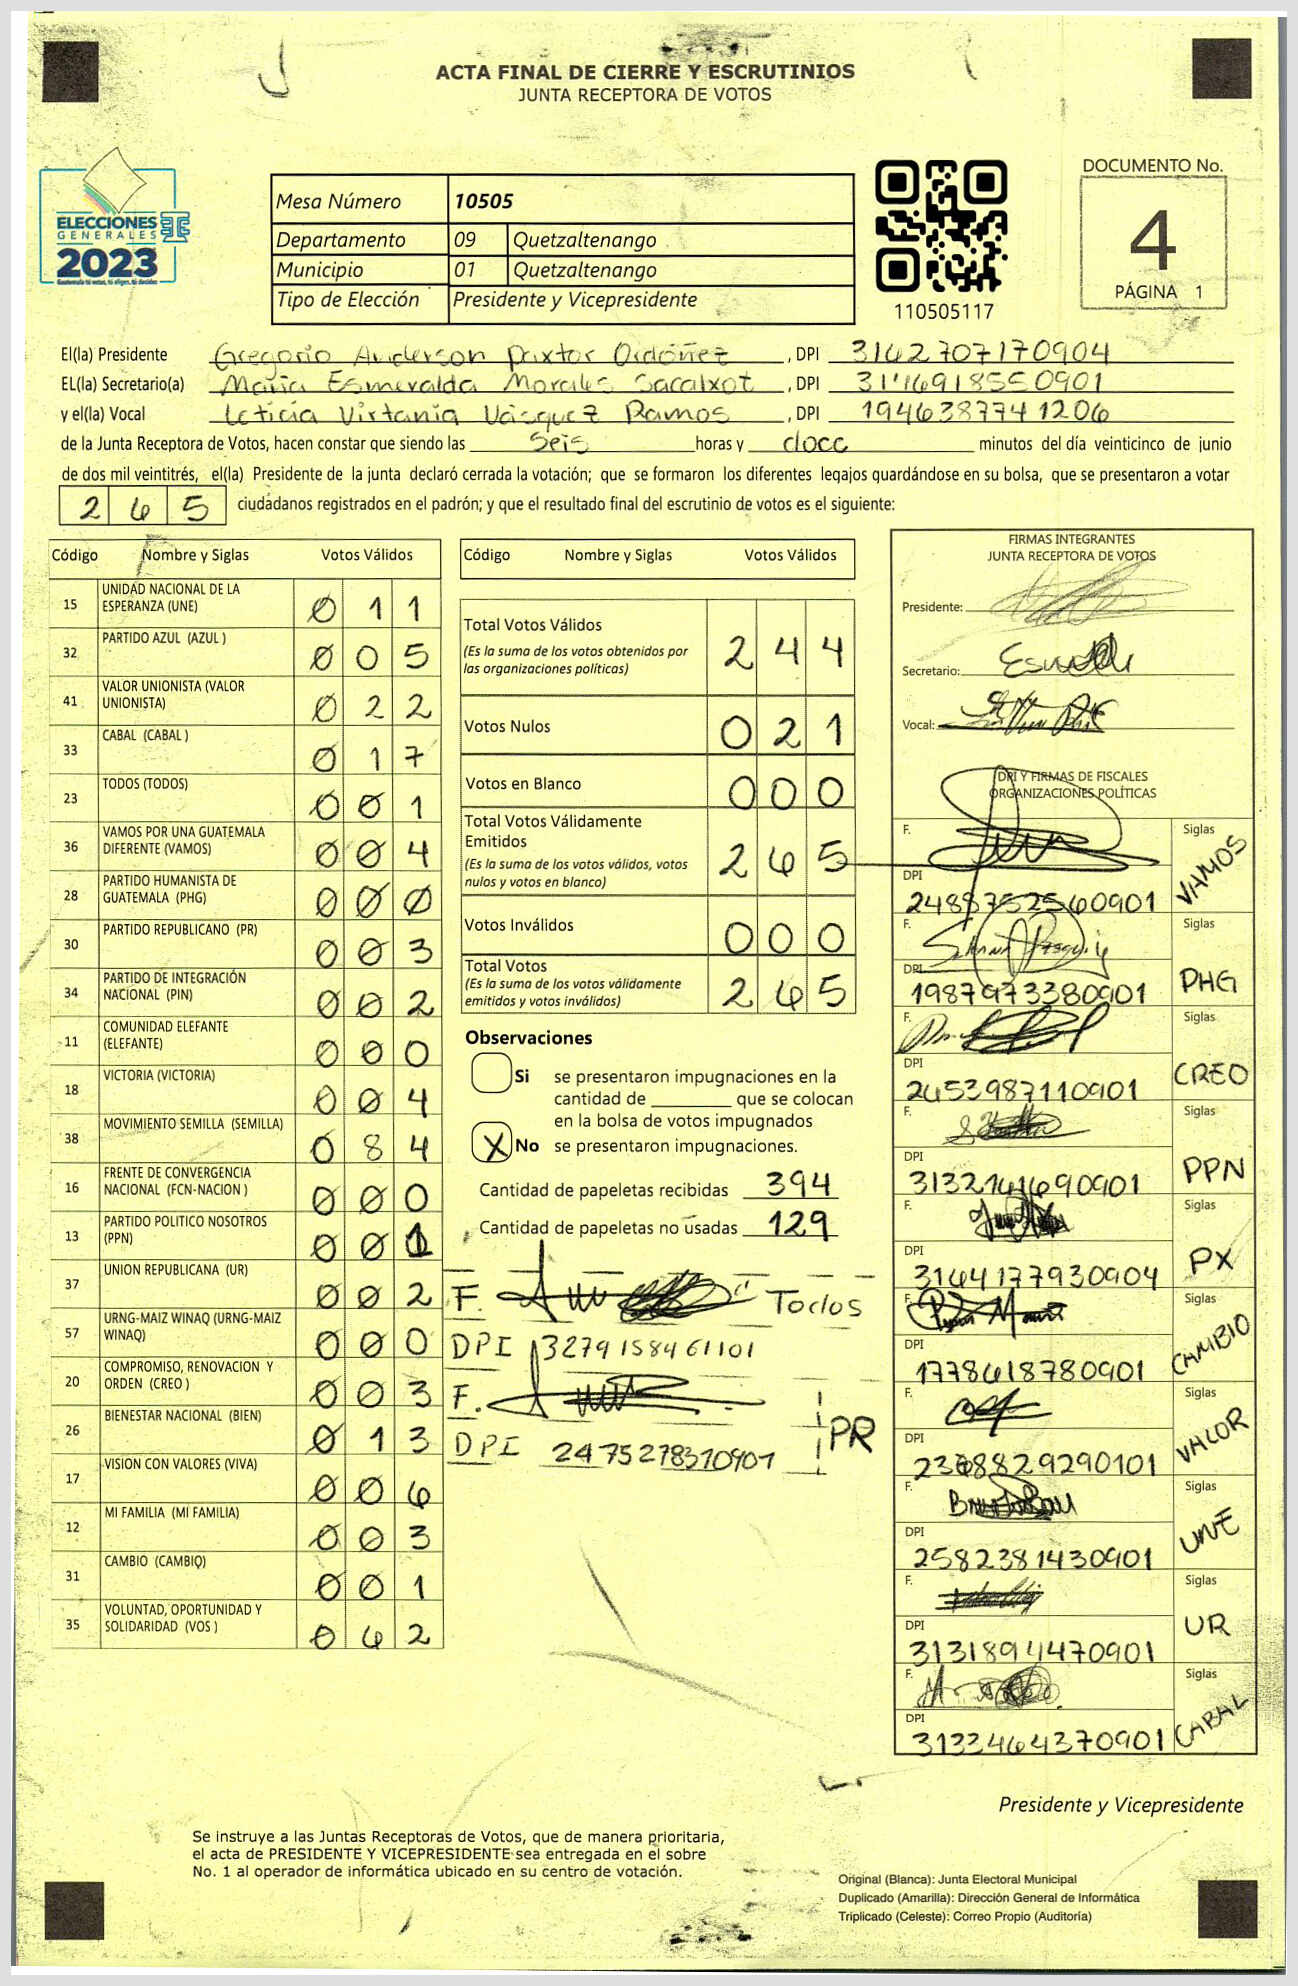 ACTA FINAL DE CIERRE Y ESCRUTINIOS
JUNTA RECEPTORA DE VOTOS
ELECCIONES
GENERALES
2023
Guatemala tú votas, tú eliges, tú decides
Mesa Número 10505
Departamento 09 Quetzaltenango
Municipio 01 Quetzaltenango
Tipo de Elección Presidente y Vicepresidente
110505117
DOCUMENTO No.
4
PÁGINA 1
El(la) Presidente Gregorio Anderson Paxtor Ordóñez, DPI 3162707170904
EL(la) Secretario(a) María Esmeralda Morales Sacalxot, DPI 3116918550901
y el(la) Vocal Leticia Virtania Vásquez Ramos, DPI 1946387741206
de la Junta Receptora de Votos, hacen constar que siendo las seis horas y doce minutos del día veinticinco de junio
de dos mil veintitrés, el(la) Presidente de la junta declaró cerrada la votación; que se formaron los diferentes legajos guardándose en su bolsa, que se presentaron a votar
265 ciudadanos registrados en el padrón; y que el resultado final del escrutinio de votos es el siguiente:
Código Nombre y Siglas Votos Válidos
15 UNIDAD NACIONAL DE LA ESPERANZA (UNE) 011
32 PARTIDO AZUL (AZUL ) 005
41 VALOR UNIONISTA (VALOR UNIONISTA) 022
33 CABAL (CABAL ) 017
23 TODOS (TODOS) 001
36 VAMOS POR UNA GUATEMALA DIFERENTE (VAMOS) 004
28 PARTIDO HUMANISTA DE GUATEMALA (PHG) 000
30 PARTIDO REPUBLICANO (PR) 003
34 PARTIDO DE INTEGRACIÓN NACIONAL (PIN) 002
11 COMUNIDAD ELEFANTE (ELEFANTE) 000
18 VICTORIA (VICTORIA) 004
38 MOVIMIENTO SEMILLA (SEMILLA) 084
16 FRENTE DE CONVERGENCIA NACIONAL (FCN-NACION ) 000
13 PARTIDO POLITICO NOSOTROS (PPN) 001
37 UNION REPUBLICANA (UR) 002
57 URNG-MAIZ WINAQ (URNG-MAIZ WINAQ) 000
20 COMPROMISO, RENOVACION Y ORDEN (CREO ) 003
26 BIENESTAR NACIONAL (BIEN) 013
17 VISION CON VALORES (VIVA) 006
12 MI FAMILIA (MI FAMILIA) 003
31 CAMBIO (CAMBIO) 001
35 VOLUNTAD, OPORTUNIDAD Y SOLIDARIDAD (VOS ) 062
Código Nombre y Siglas Votos Válidos
Total Votos Válidos 244
(Es la suma de los votos obtenidos por
las organizaciones políticas)
Votos Nulos 021
Votos en Blanco 000
Total Votos Válidamente
Emitidos 265
(Es la suma de los votos válidos, votos
nulos y votos en blanco)
Votos Inválidos 000
Total Votos 265
(Es la suma de los votos válidamente
emitidos y votos inválidos)
Observaciones
Si se presentaron impugnaciones en la
cantidad de ________ que se colocan
en la bolsa de votos impugnados
X No se presentaron impugnaciones.
Cantidad de papeletas recibidas 394
Cantidad de papeletas no usadas 129
F. Todos
DPI 3279158461101
F. PR
DPI 2475278370901
FIRMAS INTEGRANTES
JUNTA RECEPTORA DE VOTOS
Presidente:
Secretario:
Vocal:
DPI Y FIRMAS DE FISCALES
ORGANIZACIONES POLÍTICAS
F. Siglas VAMOS
DPI 2488752560901
F. Siglas PHG
DPI 1987973380901
F. Siglas CREO
DPI 2453987110901
F. Siglas PPN
DPI
F. Siglas PX
DPI 3164177930904
F. Siglas CAMBIO
DPI 1778618780901
F. Siglas VALOR
DPI
F. Siglas UNE
DPI 2582381430901
F. Siglas UR
DPI 3131894470901
F. Siglas CABAL
DPI 3133464370901
Presidente y Vicepresidente
Se instruye a las Juntas Receptoras de Votos, que de manera prioritaria,
el acta de PRESIDENTE Y VICEPRESIDENTE sea entregada en el sobre
No. 1 al operador de informática ubicado en su centro de votación.
Original (Blanca): Junta Electoral Municipal
Duplicado (Amarilla): Dirección General de Informática
Triplicado (Celeste): Correo Propio (Auditoría)